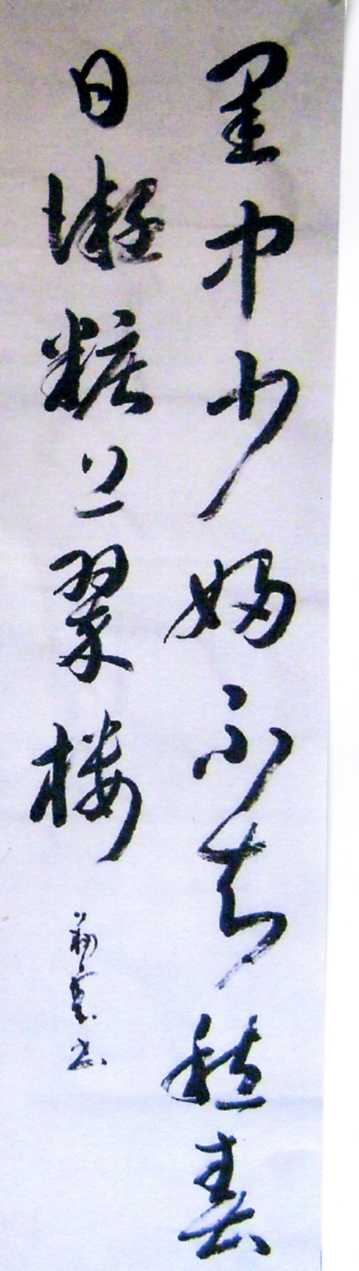 閨中少婦不知愁春
日凝粧上翠樓
書